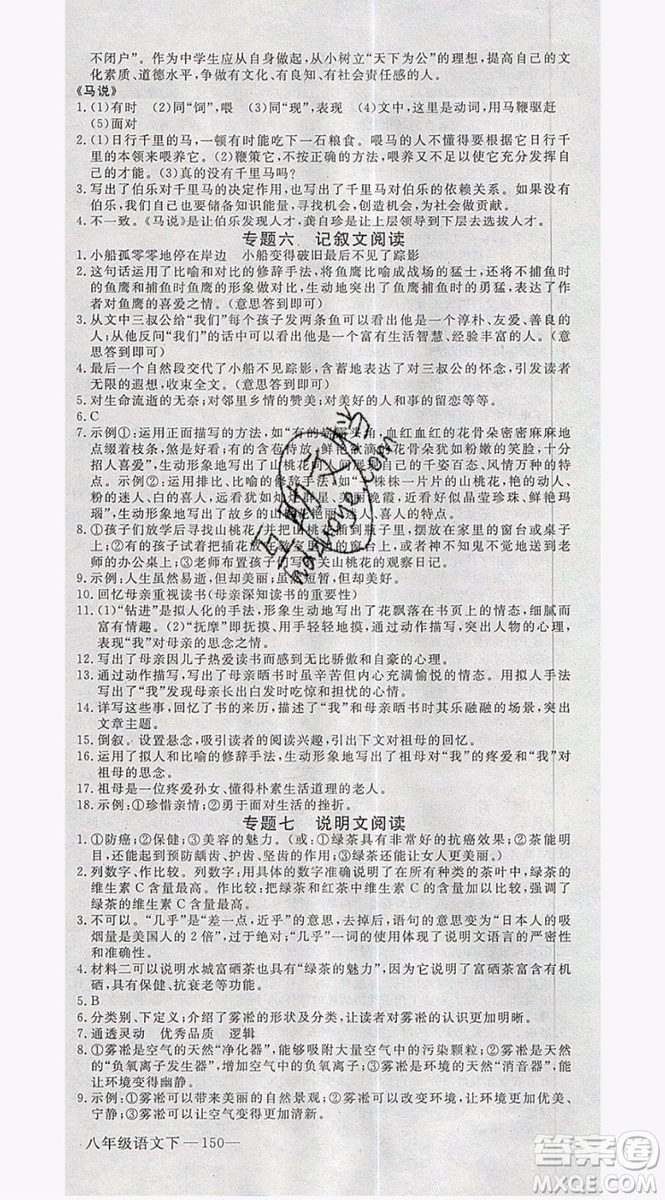 不闭户”。作为中学生应从自身做起，从小树立“天下为公”的理想，努力提高自己的文
化素质、道德水平，争做有文化、有良知、有社会责任感的人。
《马说》
1. (1)有时　(2)同“饲”，喂　(3)同“现”，表现　(4)文中，这里是动词，用马鞭驱赶
(5)面对
2. (1)日行千里的马，一顿有时能吃下一石粮食。喂马的人不懂得要根据它日行千
里的本领来喂养它。(2)鞭策它，不用正确的方法，喂养它，却不能充分发挥它自
己的才能。(3)真的没有千里马吗?
3. 写出了伯乐对千里马的决定作用，也写出了千里马对伯乐的依赖关系。如果没有
机会，自己也要储备知识能量，寻找机会，创造机会，为社会做贡献。
4. 不一致。《马说》是让伯乐发现人才，龚自珍是让上层领导对下层去选拔人才。
专题六　记叙文阅读
1. 小船孤零零地停在岸边　小船变得破旧最后不见了踪影
2. 这句话运用了比喻和对比的修辞手法，将鱼鹰比喻成战场的猛士，还将不捕鱼时
的鱼鹰和捕鱼时的鱼鹰的形象做对比，生动地突出了鱼鹰捕鱼时的勇猛，表达了
对鱼鹰的喜爱之情。(意思答到即可)
3. 从文中三叔公给“我们”每个孩子发两条鱼可以看出他是一个淳朴、友爱、善良的
人。从他反问“我们”的话中可以看出他是一个富有生活智慧、经验丰富的人。(意
思答到即可)
4. 最后一个自然段交代了小船不见踪影，含蓄地表达了对三叔公的怀念，引发读者
无限的遐想，收束全文。(意思答到即可)
5. 对生命流逝的无奈；对邻里乡情的赞美；对美好的人和事的留恋等等。
6. C
7. 示例①：运用正面描写的方法，例如：有的
头角，血红血红的花骨朵密密麻麻地
点缀着枝条，煞是好看；有的含苞待放，鲜艳欲滴的花骨朵犹如粉嫩的笑脸，十分
招人喜爱，生动形象地写出了山桃花向人间展现自己的千姿百态、风情万种的特
点。示例②：运用排比、比喻的修辞手法，如“一株株一片片的山桃花，
群星、美丽晚霞，近看色似晶莹珍珠、鲜艳玛
瑙”，生动形象地写出了故乡的山桃花
8. ①孩子们放学后寻找山桃花，并将山桃花插到瓶子里，摆放在家里的窗台或书桌
上；②有的孩子试着把插花放在教室的窗台上，甚至神不知鬼不觉地送到了老
师的办公桌上；③老师布置了有关山桃花的观察日记。
9. 示例：人生虽然易逝，但却美丽；虽然短暂，但却美好。
10. 回忆母亲重视读书(母亲深知读书的重要性)
11. (1)“钻进”是拟人化的手法，形象生动地写出了花飘落在书页上的情态，细腻而
富有情趣。(2)“抚摩”即抚摸，用手轻轻地摸，形象生动地写出了人物的心理，表
现“我”对母亲的思念之情。
12. 写出了母亲因儿子热爱读书而感到无比骄傲和自豪的心理。
13. 通过动作描写，写出了母亲虽是辛苦忙碌但充满愉悦的情态。用拟人手法
写出了“我”发现母亲晒书时的惊喜、愉快的心理。
14. 详写这些事，既回忆了书的来历，以及和母亲晒书时的其乐融融的场景，突出
文章主题。
15. 倒叙。设置悬念，吸引读者的阅读兴趣，引出下文对祖母的回忆。
16. 运用了拟人和比喻的修辞手法，生动形象地写出了祖母对“我”的疼爱和“我”
对祖母的思念。
17. 祖母是一位疼爱孙女、懂得朴素生活道理的老人。
18. 示例：①珍惜亲情；②勇于面对生活的挫折。
专题七　说明文阅读
1. ①防癌；②保健；③美容的魅力。(或：①绿茶具有非常好的抗癌效果；②绿茶有
很好的预防龋齿、护齿、坚齿的作用；③绿茶还能让女人变得更美丽。)
2. 列数字、作比较。列数字，用具体的数字准确地说明了各种类型的茶叶中，绿茶的
维生素 C 含量最高。作比较，把绿茶和红茶中维生素 C 含量作比较，突出绿茶的
维生素 C 含量最高。
3. 不可以。“几乎”是“差一点，近乎”的意思，去掉后，语句的意思变成了“日本人的吸
烟量是美国人的 2 倍”，过于绝对，“几乎”一词的使用体现了说明文语言的严密性
和准确性。
4. 材料二可以说明水城富硒茶也具有“绿茶的魅力”，因为它说明了富硒茶富含有机
硒，具有保健、抗衰老等功效。
5. B
6. 分类别、下定义；介绍了雾凇的形状及分类，让读者对雾凇的认识更加明晰。
7. 通透灵动　优秀品质　逻辑
8. ①雾凇是空气的天然“净化器”，能够吸附大量空气中的污染颗粒；②雾凇是天然
的“负氧离子发生器”，增加空气中的负氧离子；③雾凇是环境的天然“消音器”，能
让环境变得幽静。
9. 示例：①雾凇可以带来美丽的自然景观；②雾凇可以净化空气；③雾凇让环境变得
宁静；④雾凇会增加空气的清新。
八年级语文下 —150—
作业精灵
hdzuoye.com
答案圈
MXQE.COM